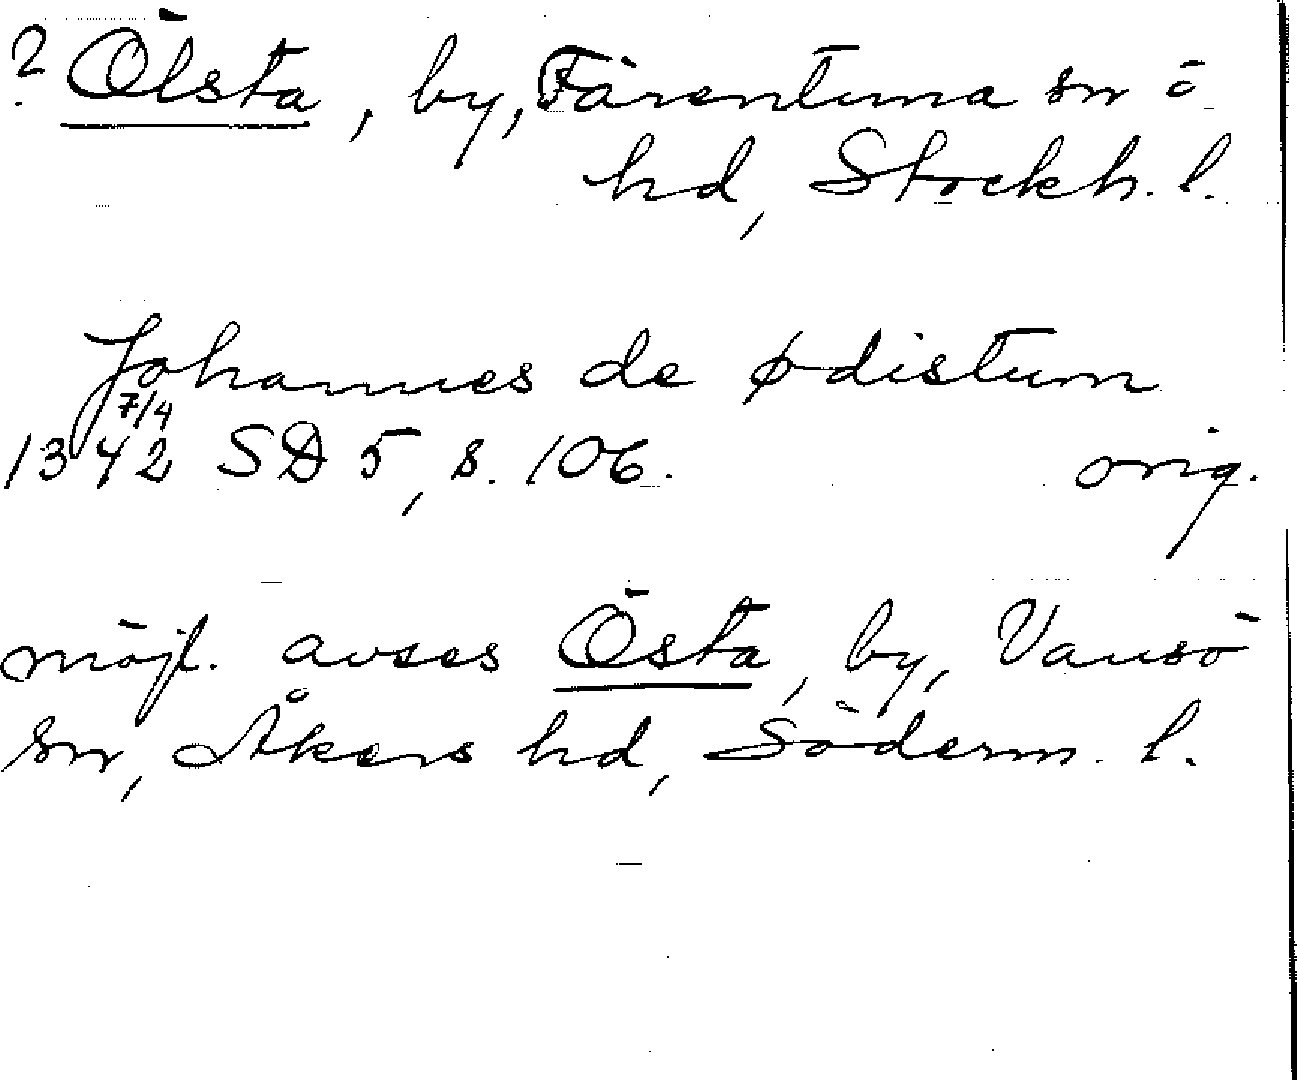 ? Ölsta, by, Färentuna sn o
hd, Stockh. l.
Johannes de ødistum
7/4
1342 SD 5, s. 106. orig.
möjl. avses Östa, by, Vansö
sn, Åkers hd, Söderm. l.